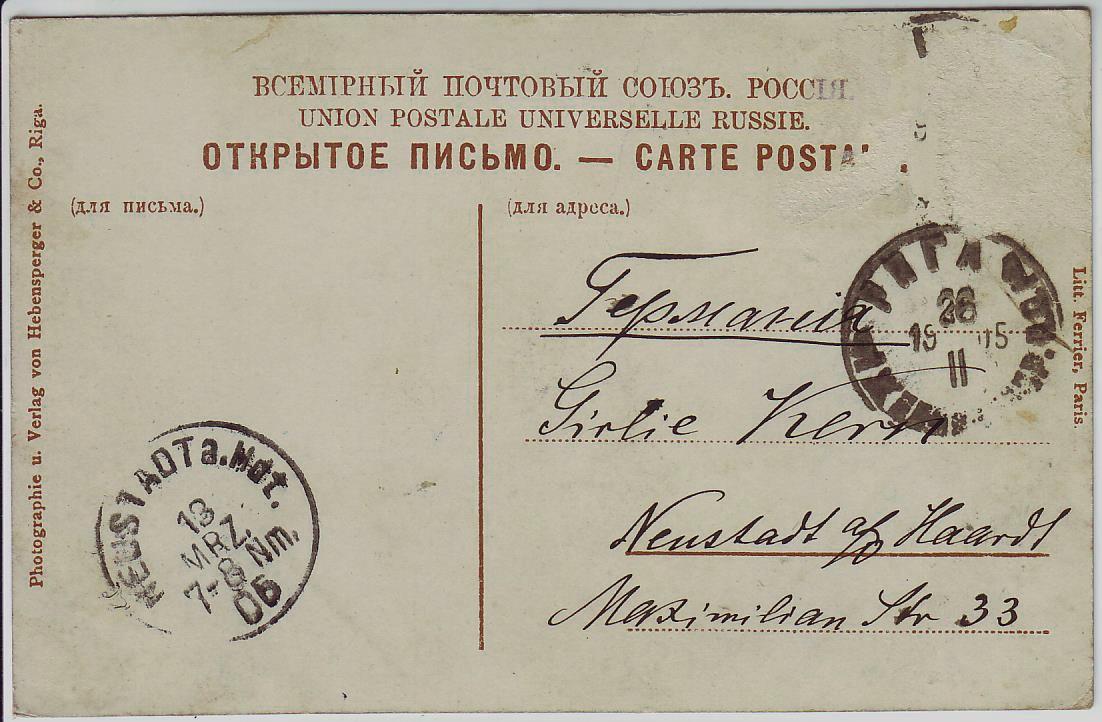 ВСЕМІРНЫЙ ПОЧТОВЫЙ СОЮЗЪ. РОССІЯ.
UNION POSTALE UNIVERSELLE RUSSIE.
ОТКРЫТОЕ ПИСЬМО. — CARTE POSTAL.
(для письма.)
(для адреса.)
Германія
Girlie Kern
Neustadt a/d Haardt
Maximilian Str 33
РИГА
26
19 05
II
NEUSTADT a.Hdt.
13
MRZ.
7-8 Nm.
05
Photographie u. Verlag von Hebensperger & Co., Riga.
Litt. Ferrier, Paris.